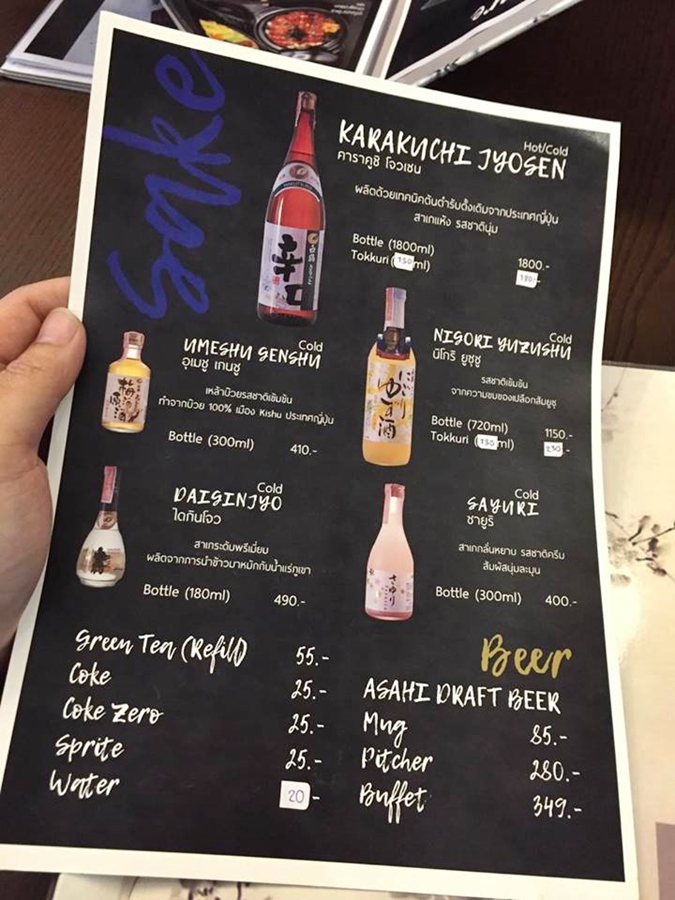 Sake
KARAKUCHI JYOSEN
Hot/Cold
คาราคูชิ โจวเซน
ผลิตด้วยเทคนิคต้นตำรับดั้งเดิมจากประเทศญี่ปุ่น
สาเกแห้ง รสชาตินุ่ม
Bottle (1800ml) 1800.-
Tokkuri (150ml) 180.-
辛口
白鶴
UMESHU GENSHU
Cold
อุเมชู เกนชู
เหล้าบ๊วยรสชาติเข้มข้น
ทำจากบ๊วย 100% เมือง Kishu ประเทศญี่ปุ่น
Bottle (300ml) 410.-
梅酒
原酒
NIGORI YUZUSHU
Cold
นิโกริ ยูซุชู
รสชาติเข้มข้น
จากความขมของเปลือกส้มยูซุ
Bottle (720ml) 1150.-
Tokkuri (150ml) 250.-
にごり
ゆず酒
DAIGINJYO
Cold
ไดกินโจว
สาเกระดับพรีเมี่ยม
ผลิตจากการนำข้าวมาหมักกับน้ำแร่ภูเขา
Bottle (180ml) 490.-
SAYURI
Cold
ซายูริ
สาเกกลั่นหยาบ รสชาติครีม
สัมผัสนุ่มละมุน
Bottle (300ml) 400.-
さゆり
Green Tea (Refill) 55.-
Coke 25.-
Coke Zero 25.-
Sprite 25.-
Water 20.-
Beer
ASAHI DRAFT BEER
Mug 85.-
Pitcher 280.-
Buffet 349.-